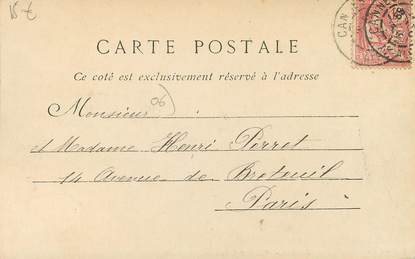 15 €
CARTE POSTALE
Ce coté est exclusivement réservé à l'adresse
06)
Monsieur
et Madame Henri Perret
14 Avenue de Breteuil
Paris